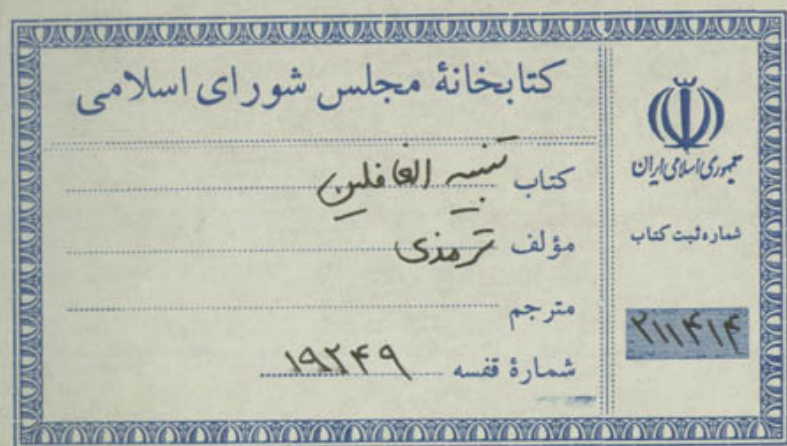 کتابخانهٔ مجلس شورای اسلامی
کتاب تنبیه الغافلین
مؤلف ترمذی
مترجم
شمارهٔ قفسه ۱۹۲۴۹
جمهوری اسلامی ایران
شماره ثبت کتاب
۲۱۱۴۱۴